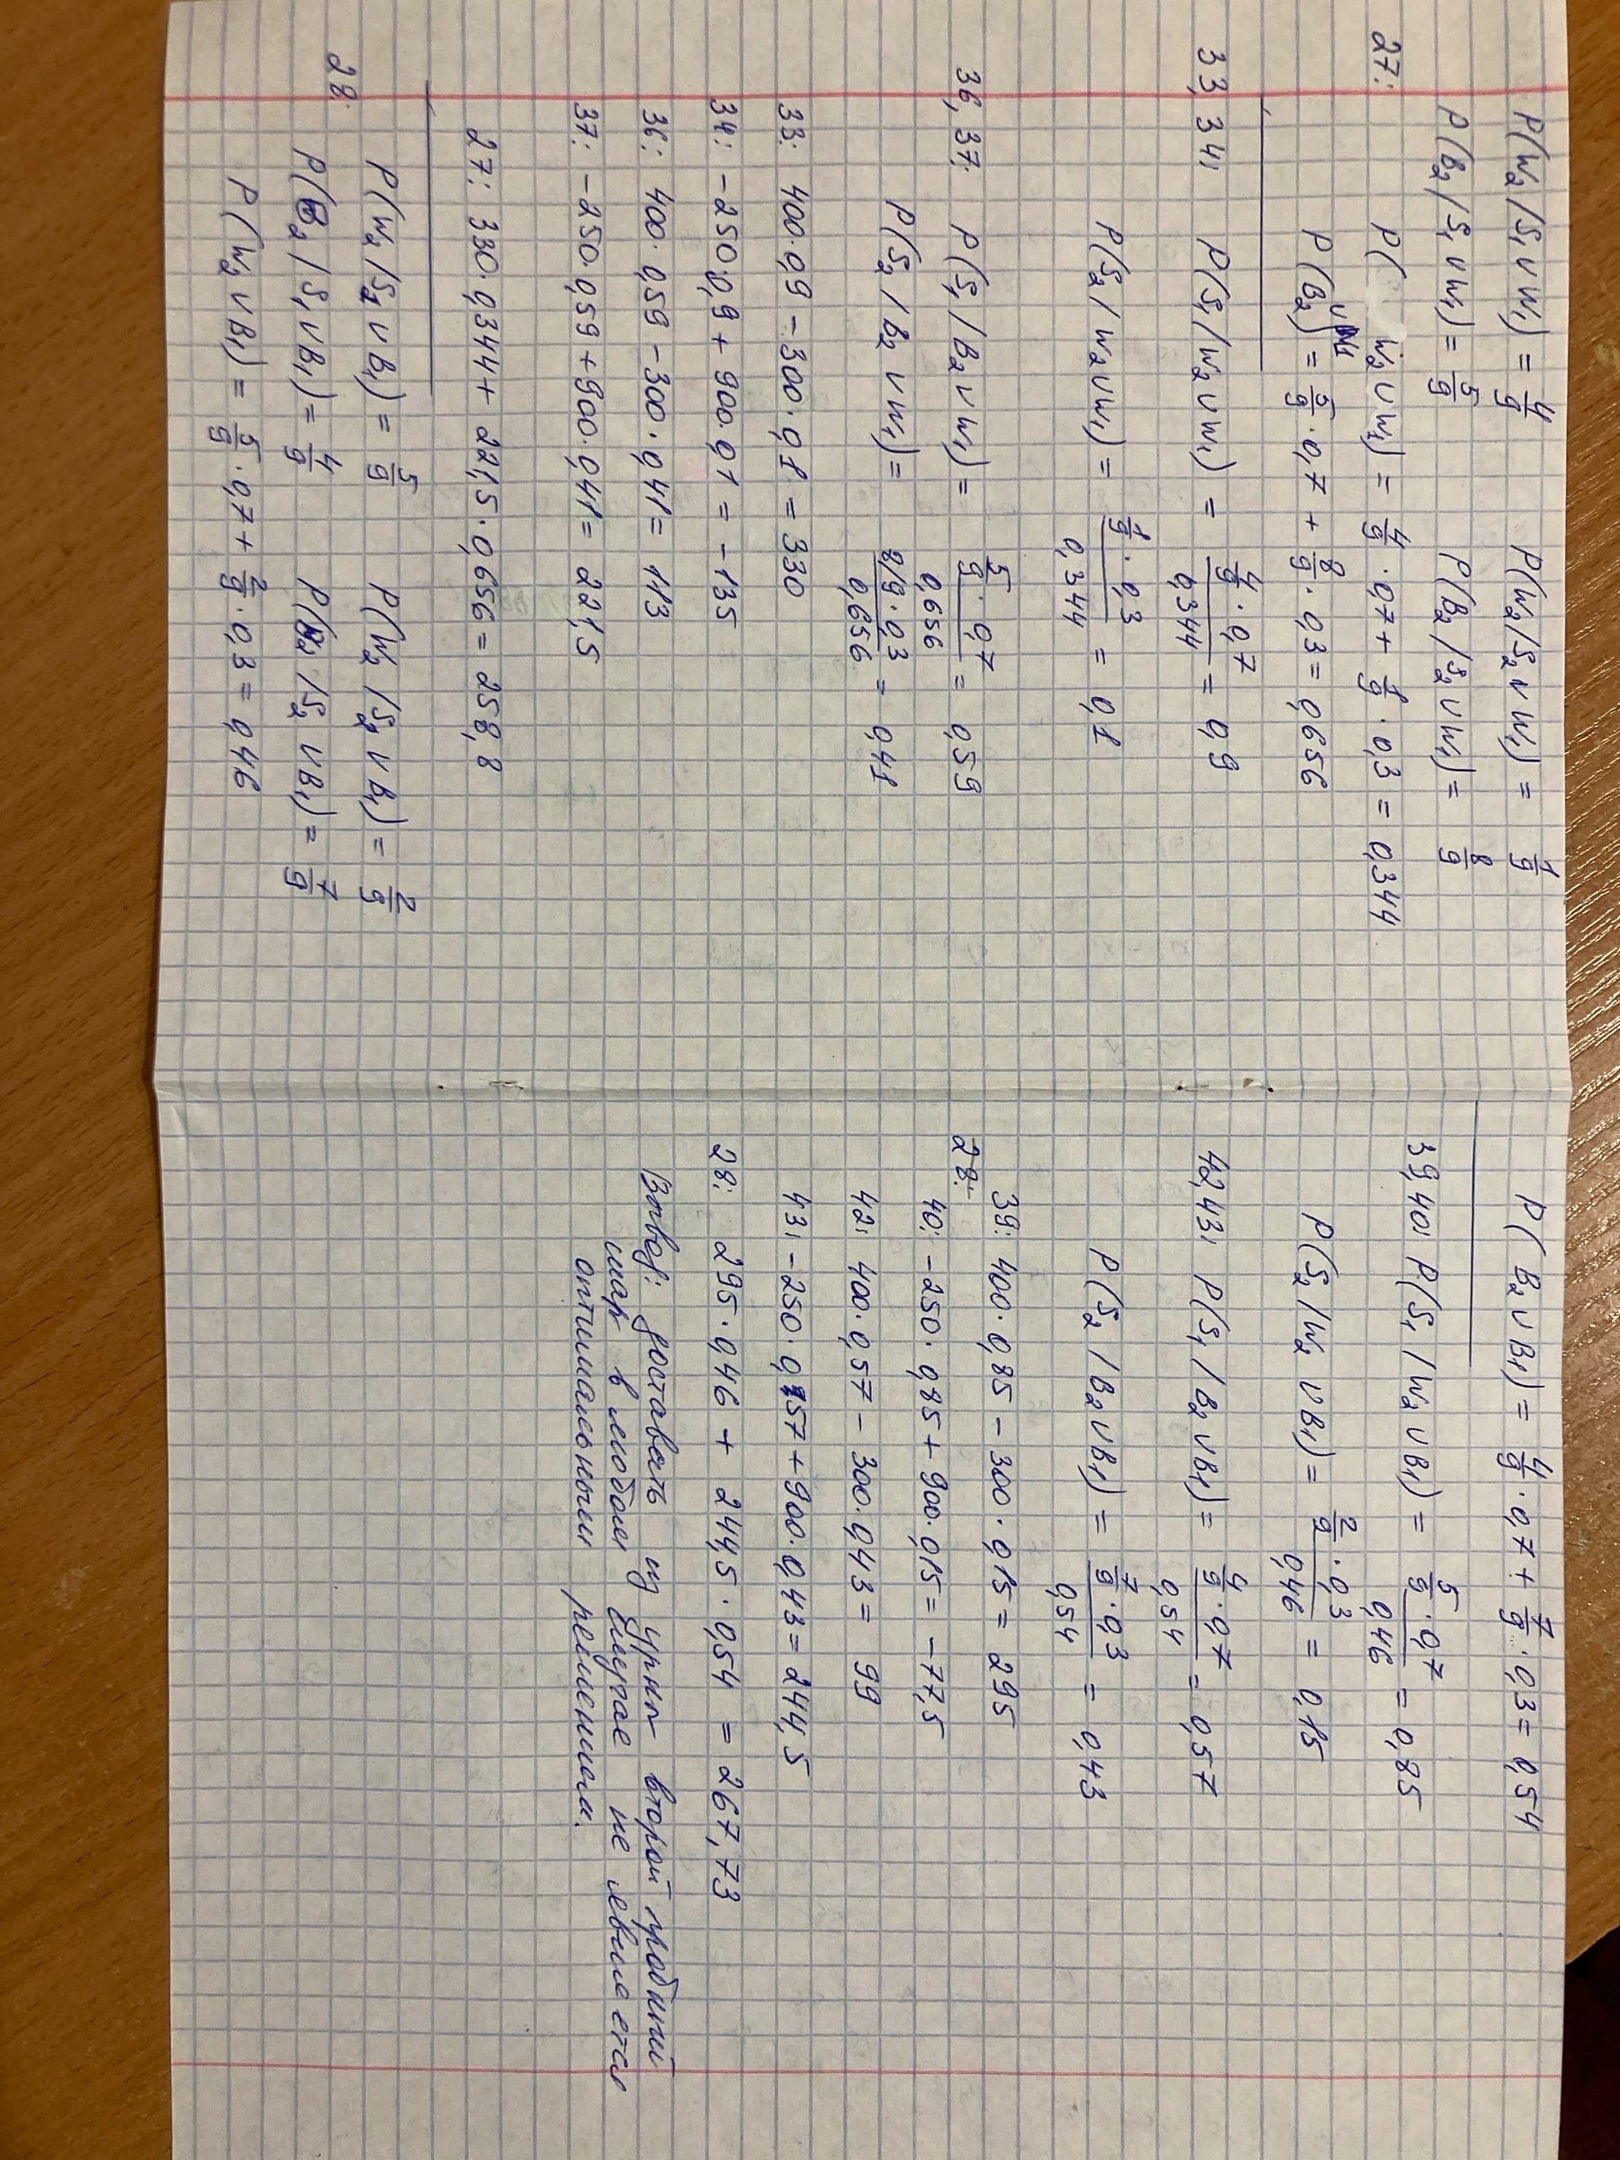 P(W₂/S₁ ∨ W₁) = 4/9 P(W₂/S₂ ∨ W₁) = 1/9
P(B₂/S₁ ∨ W₁) = 5/9 P(B₂/S₂ ∨ W₁) = 8/9
27: P(W₂ ∨ W₁) = 4/9 · 0,7 + 1/9 · 0,3 = 0,344
P(B₂ ∨ W₁) = 5/9 · 0,7 + 8/9 · 0,3 = 0,656
33, 34: P(S₁/W₂ ∨ W₁) = (4/9 · 0,7)/0,344 = 0,9
P(S₂/W₂ ∨ W₁) = (1/9 · 0,3)/0,344 = 0,1
36, 37: P(S₁/B₂ ∨ W₁) = (5/9 · 0,7)/0,656 = 0,59
P(S₂/B₂ ∨ W₁) = (8/9 · 0,3)/0,656 = 0,41
33: 400·0,9 − 300·0,1 = 330
34: −250·0,9 + 900·0,1 = −135
36: 400·0,59 − 300·0,41 = 113
37: −250·0,59 + 900·0,41 = 221,5
27: 330·0,344 + 221,5·0,656 = 258,8
28: P(W₂/S₁ ∨ B₁) = 5/9 P(W₂/S₂ ∨ B₁) = 2/9
P(B₂/S₁ ∨ B₁) = 4/9 P(B₂/S₂ ∨ B₁) = 7/9
P(W₂ ∨ B₁) = 5/9 · 0,7 + 2/9 · 0,3 = 0,46
P(B₂ ∨ B₁) = 4/9 · 0,7 + 7/9 · 0,3 = 0,54
39, 40: P(S₁/W₂ ∨ B₁) = (5/9 · 0,7)/0,46 = 0,85
P(S₂/W₂ ∨ B₁) = (2/9 · 0,3)/0,46 = 0,15
42, 43: P(S₁/B₂ ∨ B₁) = (4/9 · 0,7)/0,54 = 0,57
P(S₂/B₂ ∨ B₁) = (7/9 · 0,3)/0,54 = 0,43
28:
39: 400·0,85 − 300·0,15 = 295
40: −250·0,85 + 900·0,15 = −77,5
42: 400·0,57 − 300·0,43 = 99
43: −250·0,57 + 900·0,43 = 244,5
28: 295·0,46 + 244,5·0,54 = 267,73
Вывод: доставать из урны второй пробный
шар в любом случае не является
оптимальным решением.